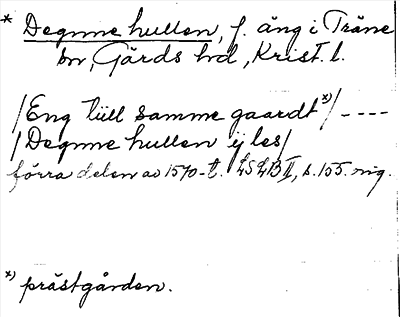 * Degnne hullen, f. äng i Träne
sn, Gärds hd, Krist. l.
/Eng tüll samme gaardt *)/ ----
/Degnne hullen ÿ les/
förra delen av 1570-t. LSLB II, s. 155. nig.
*) prästgården.